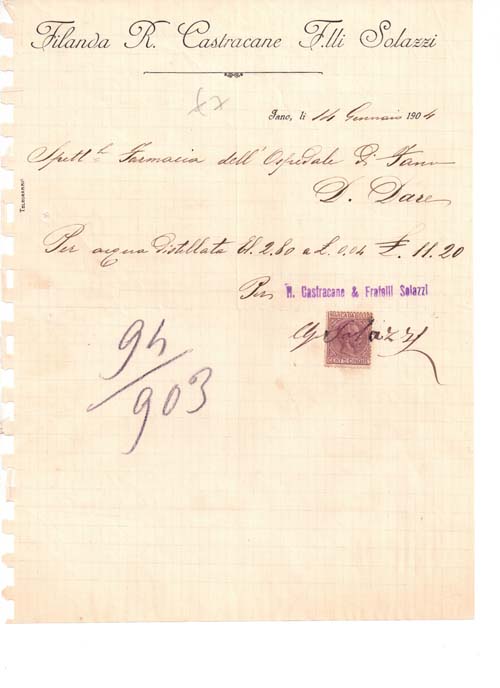 Filanda R. Castracane F.lli Solazzi
Fano, li 14 Gennaio 1904
Spett.le Farmacia dell'Ospedale di Fano
D. Dare
Per acqua distillata Hl. 2.80 a L. 0.04 £. 11.20
Per R. Castracane & Fratelli Solazzi
Solazzi
CENT. CINQUE
94/903